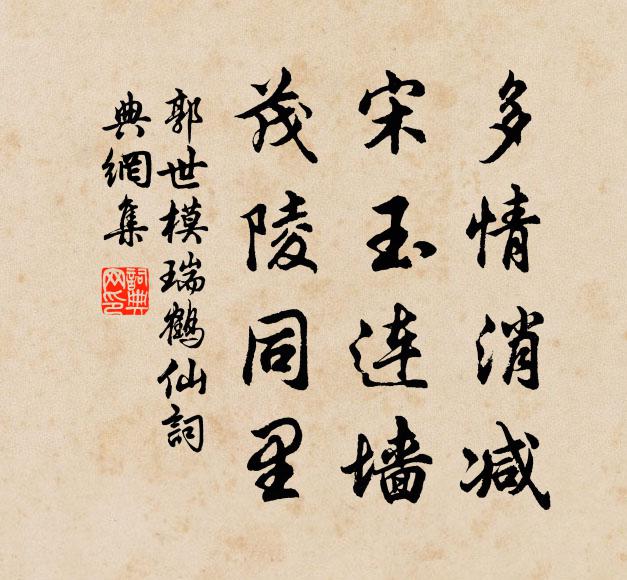 多情消减
宋玉连墙
茂陵同里
郭世模瑞鶴仙詞
典網集
詞典網印